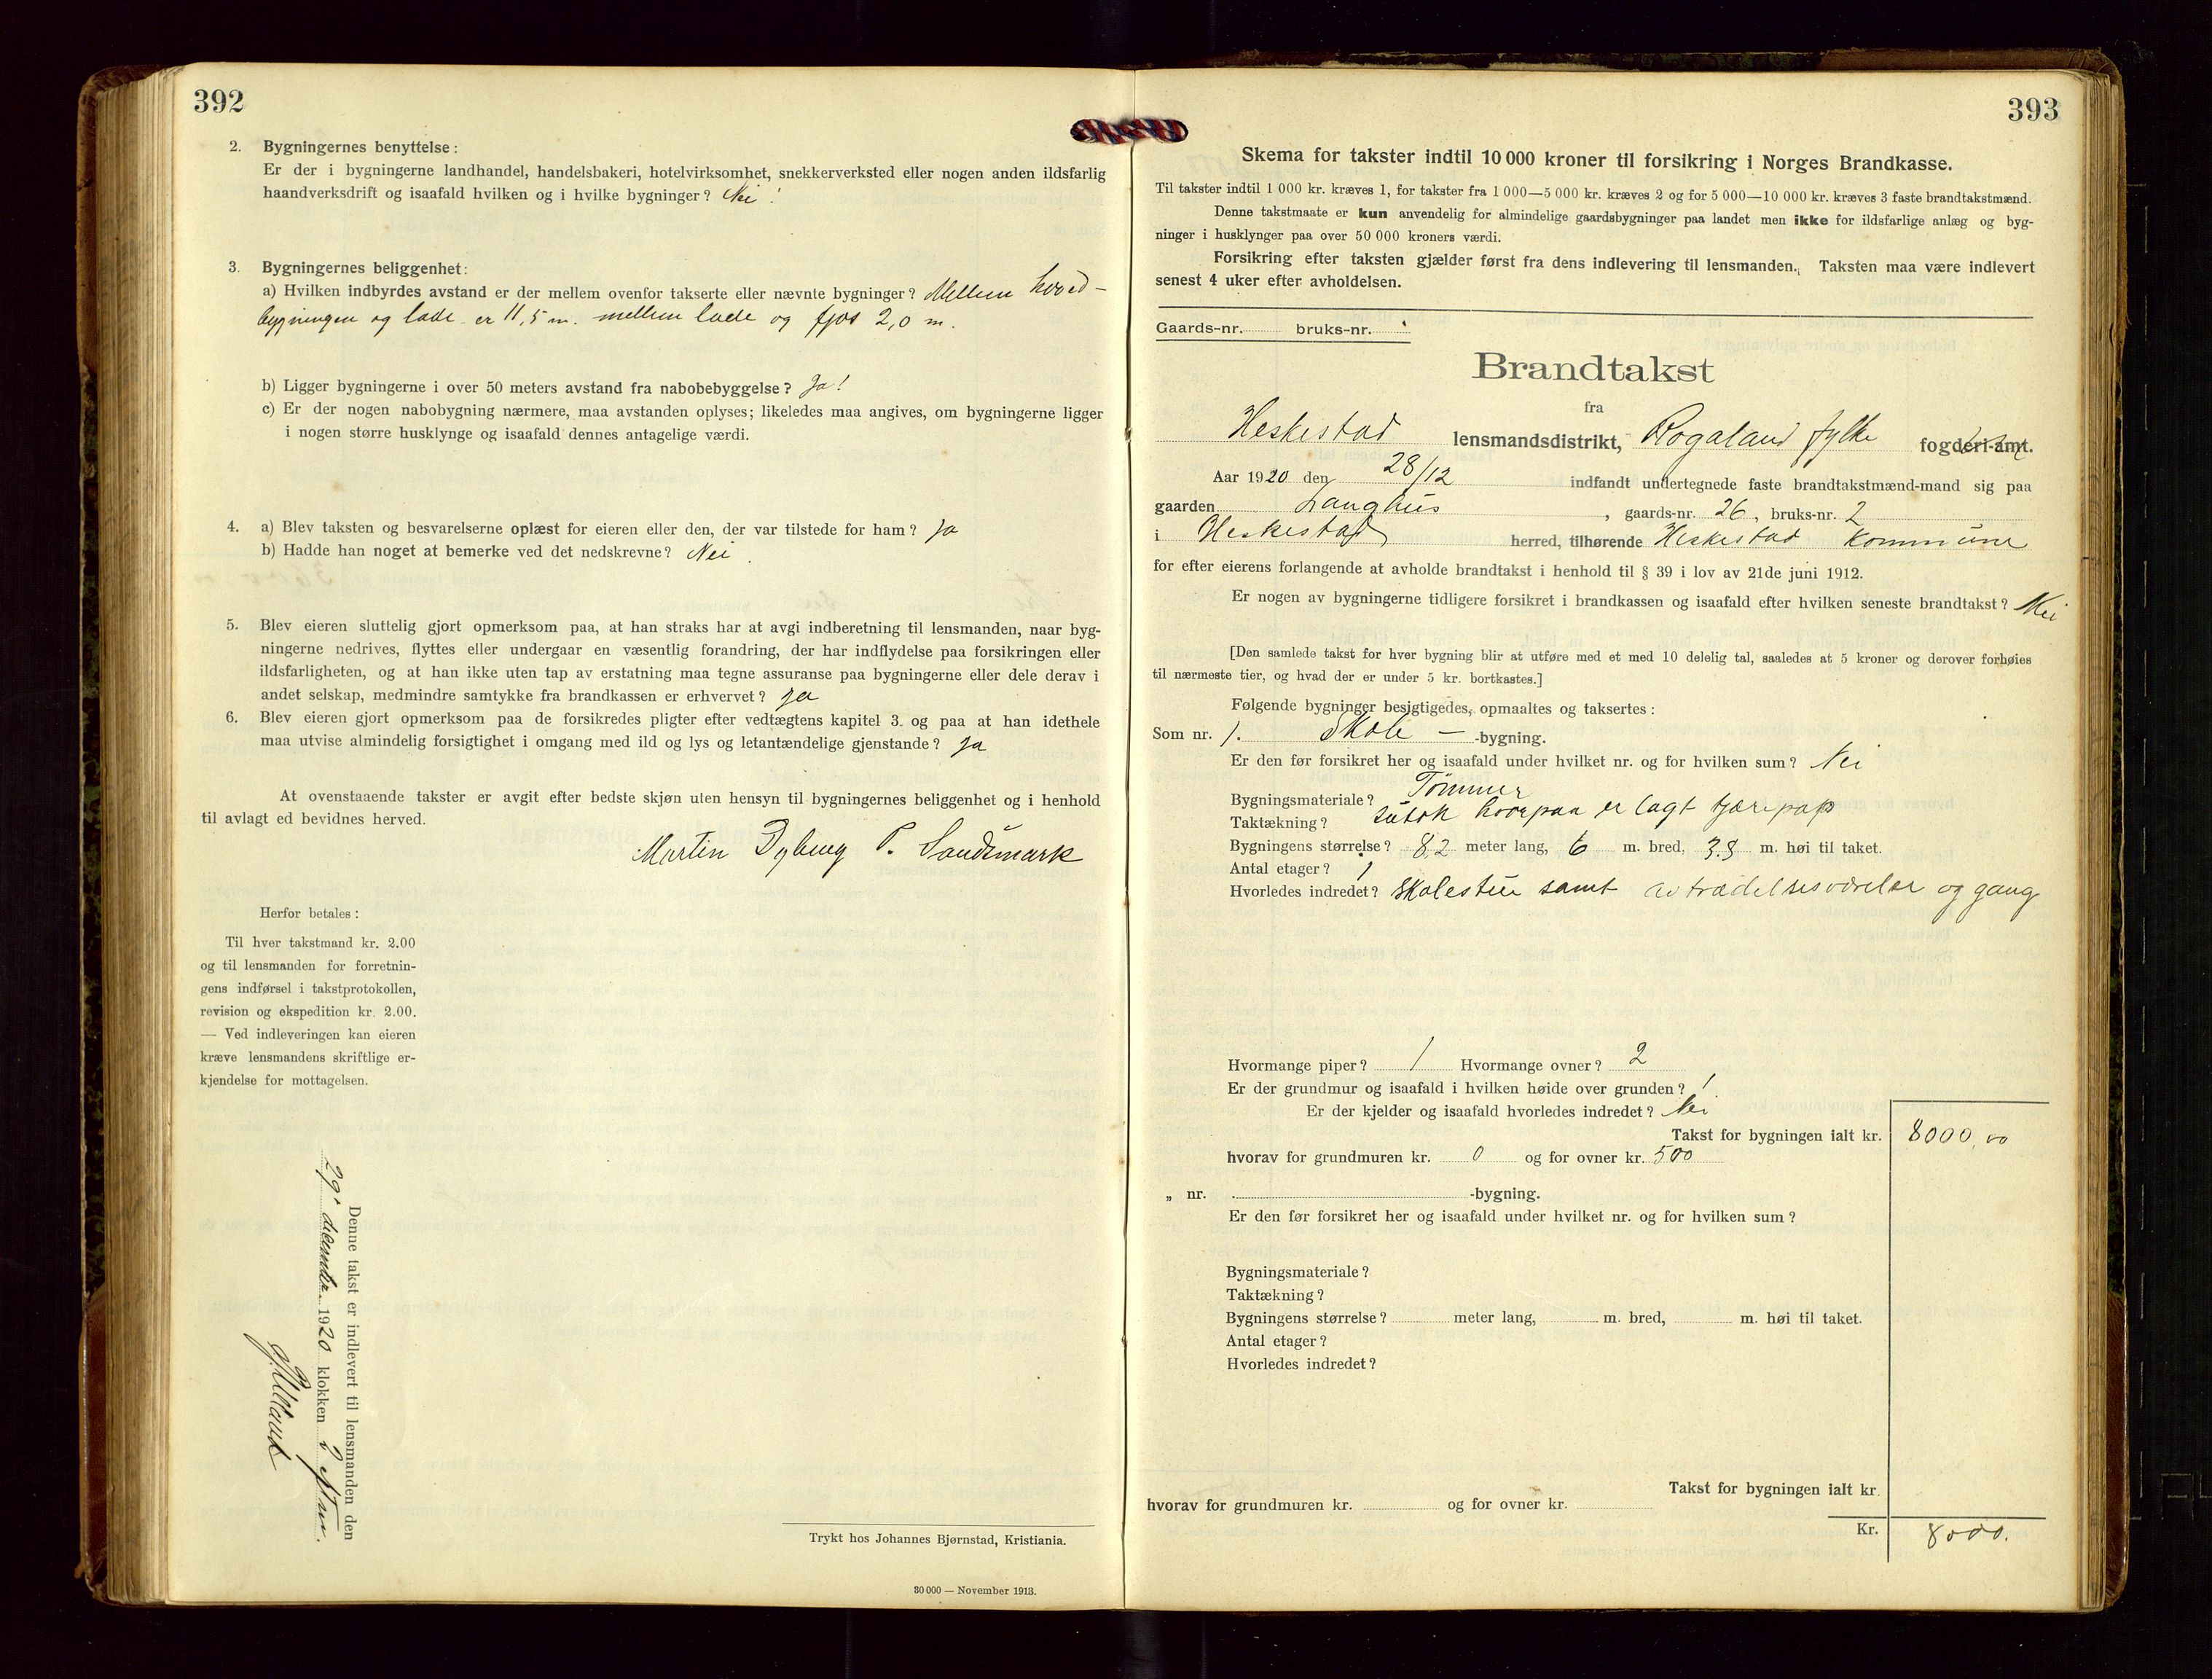 392
2. Bygningernes benyttelse:
Er der i bygningerne landhandel, handelsbakeri, hotelvirksomhet, snekkerverksted eller nogen anden ildsfarlig
haandverksdrift og isaafald hvilken og i hvilke bygninger? Nei!
3. Bygningernes beliggenhet:
a) Hvilken indbyrdes avstand er der mellem ovenfor takserte eller nævnte bygninger? Mellem hoved-
bygningen og lade er 11,5 m. mellem lade og fjøs 2,0 m.
b) Ligger bygningerne i over 50 meters avstand fra nabobebyggelse? Ja!
c) Er der nogen nabobygning nærmere, maa avstanden oplyses; likeledes maa angives, om bygningerne ligger
i nogen større husklynge og isaafald dennes antagelige værdi.
4. a) Blev taksten og besvarelserne oplæst for eieren eller den, der var tilstede for ham? Ja
b) Hadde han noget at bemerke ved det nedskrevne? Nei.
5. Blev eieren sluttelig gjort opmerksom paa, at han straks har at avgi indberetning til lensmanden, naar byg-
ningerne nedrives, flyttes eller undergaar en væsentlig forandring, der har indflydelse paa forsikringen eller
ildsfarligheten, og at han ikke uten tap av erstatning maa tegne assuranse paa bygningerne eller dele derav i
andet selskap, medmindre samtykke fra brandkassen er erhvervet? Ja
6. Blev eieren gjort opmerksom paa de forsikredes pligter efter vedtægtens kapitel 3 og paa at han idethele
maa utvise almindelig forsigtighet i omgang med ild og lys og letantændelige gjenstande? Ja
At ovenstaaende takster er avgit efter bedste skjøn uten hensyn til bygningernes beliggenhet og i henhold
til avlagt ed bevidnes herved.
Martin Dybing P. Sandsmark
Herfor betales:
Til hver takstmand kr. 2.00
og til lensmanden for forretnin-
gens indførsel i takstprotokollen,
revision og ekspedition kr. 2.00.
— Ved indleveringen kan eieren
kræve lensmandens skriftlige er-
kjendelse for mottagelsen.
Denne takst er indlevert til lensmanden den
29' december 1920 klokken
Trykt hos Johannes Bjørnstad, Kristiania.
30 000 — November 1913.
393
Skema for takster indtil 10 000 kroner til forsikring i Norges Brandkasse.
Til takster indtil 1 000 kr. kræves 1, for takster fra 1 000—5 000 kr. kræves 2 og for 5 000—10 000 kr. kræves 3 faste brandtakstmænd.
Denne takstmaate er kun anvendelig for almindelige gaardsbygninger paa landet men ikke for ildsfarlige anlæg og byg-
ninger i husklynger paa over 50 000 kroners værdi.
Forsikring efter taksten gjælder først fra dens indlevering til lensmanden. Taksten maa være indlevert
senest 4 uker efter avholdelsen.
Gaards-nr. bruks-nr.
Brandtakst
fra
Heskestad lensmandsdistrikt, Rogaland fylke fogderi-amt.
Aar 1920 den 28/12 indfandt undertegnede faste brandtakstmænd-mand sig paa
gaarden Langhus, gaards-nr. 26, bruks-nr. 2
i Heskestad herred, tilhørende Heskestad kommune
for efter eierens forlangende at avholde brandtakst i henhold til § 39 i lov av 21de juni 1912.
Er nogen av bygningerne tidligere forsikret i brandkassen og isaafald efter hvilken seneste brandtakst? Nei
[Den samlede takst for hver bygning blir at utføre med et med 10 delelig tal, saaledes at 5 kroner og derover forhøies
til nærmeste tier, og hvad der er under 5 kr. bortkastes.]
Følgende bygninger besigtigedes, opmaaltes og taksertes:
Som nr. 1. Skole -bygning.
Er den før forsikret her og isaafald under hvilket nr. og for hvilken sum? Nei
Bygningsmateriale? Tømmer
Taktækning? sutak hvorpaa er lagt tjærepap
Bygningens størrelse? 8,2 meter lang, 6 m. bred, 3.8 m. høi til taket.
Antal etager? 1
Hvorledes indredet? Skolestue samt avtrædelsesværelse og gang
Hvormange piper? 1 Hvormange ovner? 2
Er der grundmur og isaafald i hvilken høide over grunden?
Er der kjelder og isaafald hvorledes indredet? Nei
Takst for bygningen ialt kr. 8000,00
hvorav for grundmuren kr. 0 og for ovner kr. 500
„ nr. -bygning.
Er den før forsikret her og isaafald under hvilket nr. og for hvilken sum?
Bygningsmateriale?
Taktækning?
Bygningens størrelse? meter lang, m. bred, m. høi til taket.
Antal etager?
Hvorledes indredet?
Takst for bygningen ialt kr.
hvorav for grundmuren kr. og for ovner kr.
Kr. 8000.